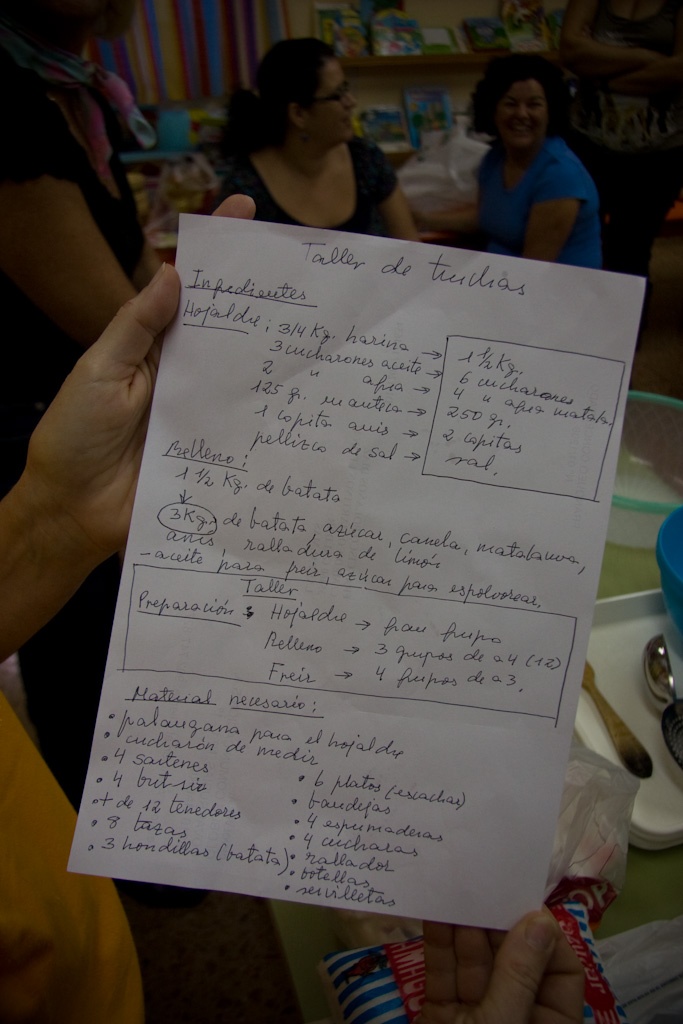 Taller de truchas
Ingredientes
Hojaldre: 3/4 Kg. harina → 1 1/2 Kg.
3 cucharones aceite → 6 cucharones
2 " agua → 4 " agua matala.
125 g. manteca → 250 gr.
1 copita anis → 2 copitas
pellizco de sal → sal.
Relleno:
1 1/2 Kg. de batata
3 Kg. de batata, azúcar, canela, matalauva,
anis ralladura de limón
- aceite para freir, azúcar para espolvorear.
Taller
Preparación: Hojaldre → gran grupo
Relleno → 3 grupos de a 4 (12)
Freir → 4 grupos de a 3.
Material necesario:
• palangana para el hojaldre
• cucharón de medir
• 4 sartenes
• 4 butsir
• + de 12 tenedores
• 8 tazas
• 3 hondillas (batata)
• 6 platos (escachar)
• bandejas
• 4 espumaderas
• 4 cucharas
• rallador
• botellas
• servilletas